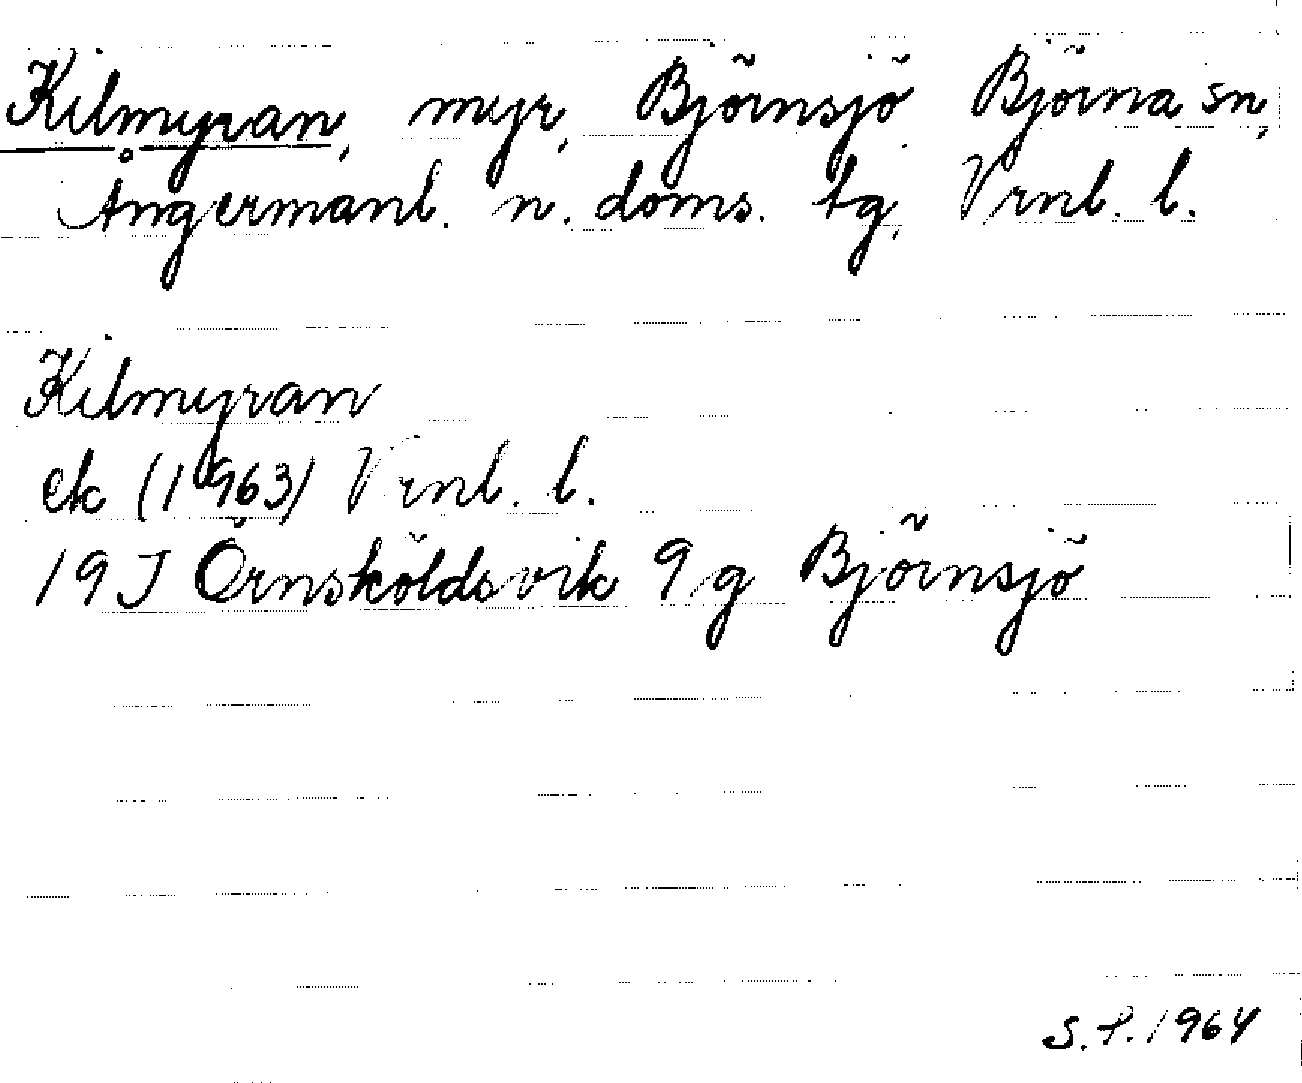 Kilmyran, myr, Björnsjö Björna sn,
Ångermanl. n. doms. tg, Vrnl. l.
Kilmyran
ek (1963) Vrnl. l.
19J Örnsköldsvik 9g Björnsjö
S.P. 1964